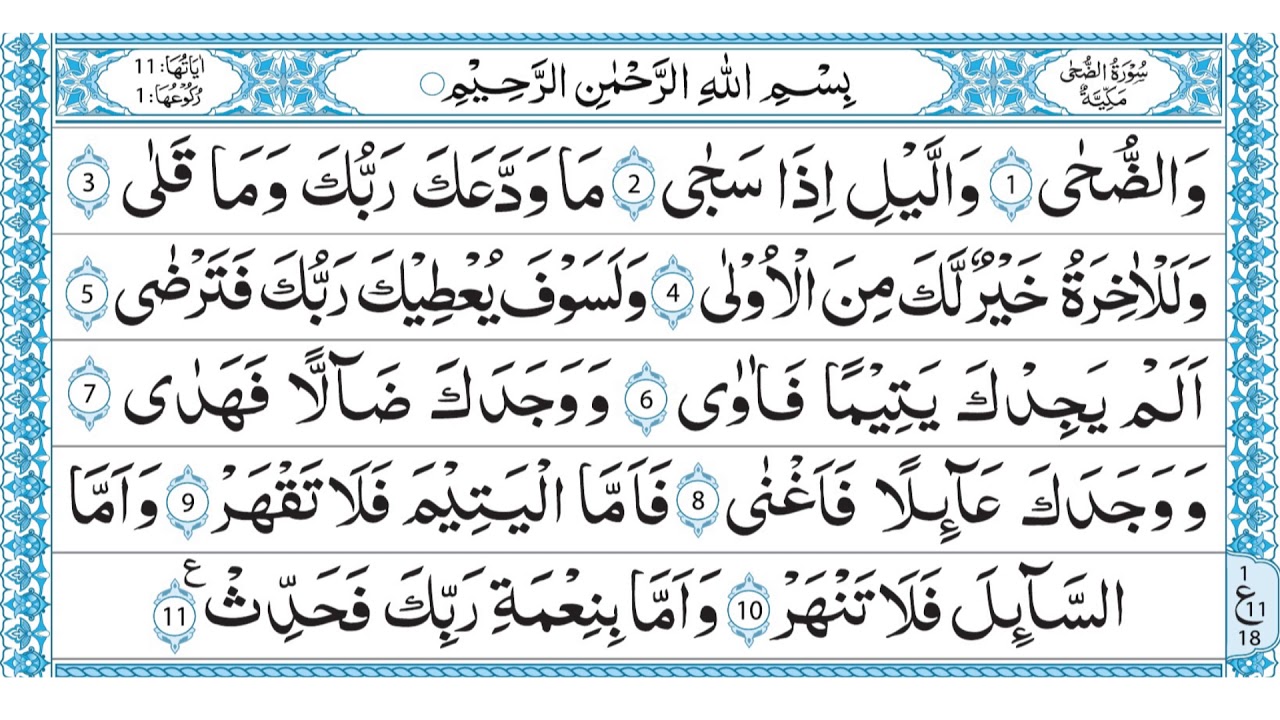 سُوْرَةُ الضُّحٰى
مَكِّيَّةٌ
بِسْمِ اللهِ الرَّحْمٰنِ الرَّحِيْمِ
اٰيَاتُهَا: 11
رُكُوْعُهَا: 1
وَالضُّحٰى 1 وَالَّيْلِ اِذَا سَجٰى 2 مَا وَدَّعَكَ رَبُّكَ وَمَا قَلٰى 3
وَلَلْاٰخِرَةُ خَيْرٌ لَّكَ مِنَ الْاُوْلٰى 4 وَلَسَوْفَ يُعْطِيْكَ رَبُّكَ فَتَرْضٰى 5
اَلَمْ يَجِدْكَ يَتِيْمًا فَاٰوٰى 6 وَوَجَدَكَ ضَآلًّا فَهَدٰى 7
وَوَجَدَكَ عَآئِلًا فَاَغْنٰى 8 فَاَمَّا الْيَتِيْمَ فَلَا تَقْهَرْ 9 وَاَمَّا
السَّآئِلَ فَلَا تَنْهَرْ 10 وَاَمَّا بِنِعْمَةِ رَبِّكَ فَحَدِّثْ 11 ع
1
ع 11
18